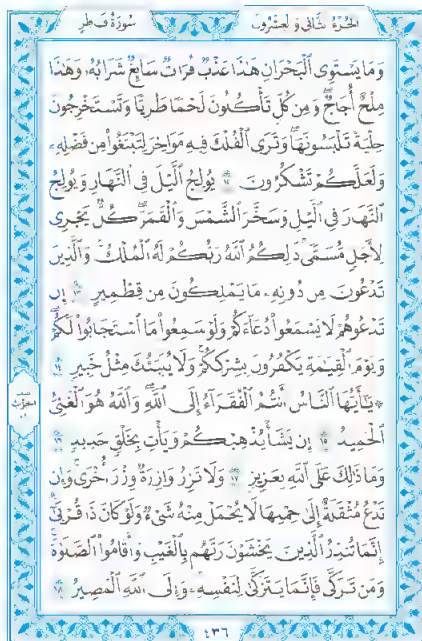 الجزء الثاني والعشرون سورة فاطر
وَمَا يَسْتَوِى ٱلْبَحْرَانِ هَٰذَا عَذْبٌ فُرَاتٌ سَآئِغٌ شَرَابُهُۥ وَهَٰذَا
مِلْحٌ أُجَاجٌ ۖ وَمِن كُلٍّ تَأْكُلُونَ لَحْمًا طَرِيًّا وَتَسْتَخْرِجُونَ
حِلْيَةً تَلْبَسُونَهَا ۖ وَتَرَى ٱلْفُلْكَ فِيهِ مَوَاخِرَ لِتَبْتَغُوا۟ مِن فَضْلِهِۦ
وَلَعَلَّكُمْ تَشْكُرُونَ ١٢ يُولِجُ ٱلَّيْلَ فِى ٱلنَّهَارِ وَيُولِجُ
ٱلنَّهَارَ فِى ٱلَّيْلِ وَسَخَّرَ ٱلشَّمْسَ وَٱلْقَمَرَ كُلٌّ يَجْرِى
لِأَجَلٍ مُّسَمًّى ۚ ذَٰلِكُمُ ٱللَّهُ رَبُّكُمْ لَهُ ٱلْمُلْكُ ۚ وَٱلَّذِينَ
تَدْعُونَ مِن دُونِهِۦ مَا يَمْلِكُونَ مِن قِطْمِيرٍ ١٣ إِن
تَدْعُوهُمْ لَا يَسْمَعُوا۟ دُعَآءَكُمْ وَلَوْ سَمِعُوا۟ مَا ٱسْتَجَابُوا۟ لَكُمْ ۖ
وَيَوْمَ ٱلْقِيَٰمَةِ يَكْفُرُونَ بِشِرْكِكُمْ ۚ وَلَا يُنَبِّئُكَ مِثْلُ خَبِيرٍ ١٤
۞ يَٰٓأَيُّهَا ٱلنَّاسُ أَنتُمُ ٱلْفُقَرَآءُ إِلَى ٱللَّهِ ۖ وَٱللَّهُ هُوَ ٱلْغَنِىُّ
ٱلْحَمِيدُ ١٥ إِن يَشَأْ يُذْهِبْكُمْ وَيَأْتِ بِخَلْقٍ جَدِيدٍ ١٦
وَمَا ذَٰلِكَ عَلَى ٱللَّهِ بِعَزِيزٍ ١٧ وَلَا تَزِرُ وَازِرَةٌ وِزْرَ أُخْرَىٰ ۚ وَإِن
تَدْعُ مُثْقَلَةٌ إِلَىٰ حِمْلِهَا لَا يُحْمَلْ مِنْهُ شَىْءٌ وَلَوْ كَانَ ذَا قُرْبَىٰٓ ۗ
إِنَّمَا تُنذِرُ ٱلَّذِينَ يَخْشَوْنَ رَبَّهُم بِٱلْغَيْبِ وَأَقَامُوا۟ ٱلصَّلَوٰةَ ۚ
وَمَن تَزَكَّىٰ فَإِنَّمَا يَتَزَكَّىٰ لِنَفْسِهِۦ ۚ وَإِلَى ٱللَّهِ ٱلْمَصِيرُ ١٨
٤٣٦